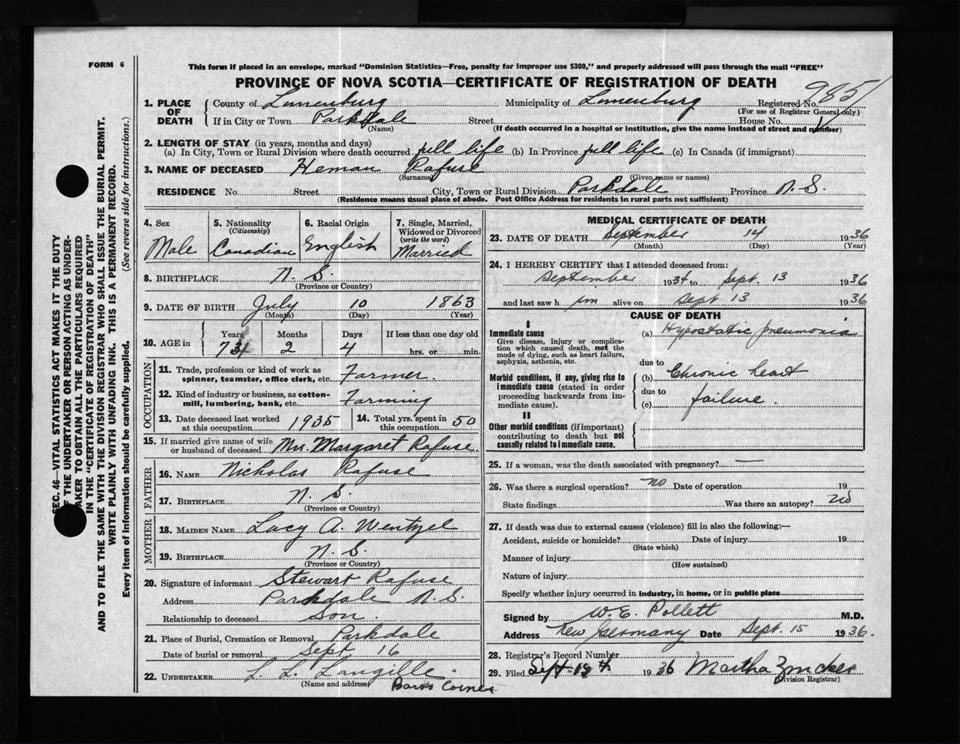 FORM 6
This form if placed in an envelope, marked "Dominion Statistics—Free, penalty for improper use $300," and properly addressed will pass through the mail "FREE"
PROVINCE OF NOVA SCOTIA—CERTIFICATE OF REGISTRATION OF DEATH
1. PLACE OF DEATH
County of Lunenburg Municipality of Lunenburg Registered No. 985
(For use of Registrar General only)
If in City or Town Parkdale Street House No.
(Name) (If death occurred in a hospital or institution, give the name instead of street and number)
2. LENGTH OF STAY (in years, months and days)
(a) In City, Town or Rural Division where death occurred full life (b) In Province full life (c) In Canada (if immigrant)
3. NAME OF DECEASED Heman Rafuse
(Surname) (Given name or names)
RESIDENCE No. Street City, Town or Rural Division Parkdale Province N. S.
(Residence means usual place of abode. Post Office Address for residents in rural parts not sufficient)
4. Sex Male
5. Nationality (Citizenship) Canadian
6. Racial Origin English
7. Single, Married, Widowed or Divorced (write the word) Married
8. BIRTHPLACE N. S.
(Province or Country)
9. DATE OF BIRTH July 10 1863
(Month) (Day) (Year)
10. AGE in Years Months Days If less than one day old
73 2 4 hrs. or min.
OCCUPATION
11. Trade, profession or kind of work as spinner, teamster, office clerk, etc. Farmer
12. Kind of industry or business, as cotton-mill, lumbering, bank, etc. Farming
13. Date deceased last worked at this occupation 1935
14. Total yrs. spent in this occupation 50
15. If married give name of wife or husband of deceased Mrs. Margaret Rafuse
FATHER
16. NAME Nicholas Rafuse
17. BIRTHPLACE N. S.
(Province or Country)
MOTHER
18. MAIDEN NAME Lucy A. Wentzel
19. BIRTHPLACE N. S.
(Province or Country)
20. Signature of informant Stewart Rafuse
Address Parkdale N. S.
Relationship to deceased Son.
21. Place of Burial, Cremation or Removal Parkdale
Date of burial or removal Sept 16
22. UNDERTAKER L. L. Langille
(Name and address) Barss Corner
MEDICAL CERTIFICATE OF DEATH
23. DATE OF DEATH September 14 1936
(Month) (Day) (Year)
24. I HEREBY CERTIFY that I attended deceased from:
September 1934 to Sept. 13 1936
and last saw h im alive on Sept 13 1936
CAUSE OF DEATH
I
Immediate cause
Give disease, injury or complication which caused death, not the mode of dying, such as heart failure, asphyxia, asthenia, etc.
(a) Hypostatic pneumonia
due to
Morbid conditions, if any, giving rise to immediate cause (stated in order proceeding backwards from immediate cause).
(b) Chronic heart
due to
(c) failure.
II
Other morbid conditions (if important) contributing to death but not causally related to immediate cause.
25. If a woman, was the death associated with pregnancy? —
26. Was there a surgical operation? no Date of operation 19
State findings Was there an autopsy? no
27. If death was due to external causes (violence) fill in also the following:—
Accident, suicide or homicide? Date of injury 19
(State which)
Manner of injury
(How sustained)
Nature of injury
Specify whether injury occurred in industry, in home, or in public place
Signed by W. E. Pollett M.D.
Address New Germany Date Sept. 15 1936.
28. Registrar's Record Number
29. Filed Sept. 1936 Martha Zwicker
(Division Registrar)
SEC. 46—VITAL STATISTICS ACT MAKES IT THE DUTY
OF THE UNDERTAKER OR PERSON ACTING AS UNDER-
TAKER TO OBTAIN ALL THE PARTICULARS REQUIRED
IN THE "CERTIFICATE OF REGISTRATION OF DEATH"
AND TO FILE THE SAME WITH THE DIVISION REGISTRAR WHO SHALL ISSUE THE BURIAL PERMIT.
WRITE PLAINLY WITH UNFADING INK. THIS IS A PERMANENT RECORD.
Every item of information should be carefully supplied. (See reverse side for instructions.)